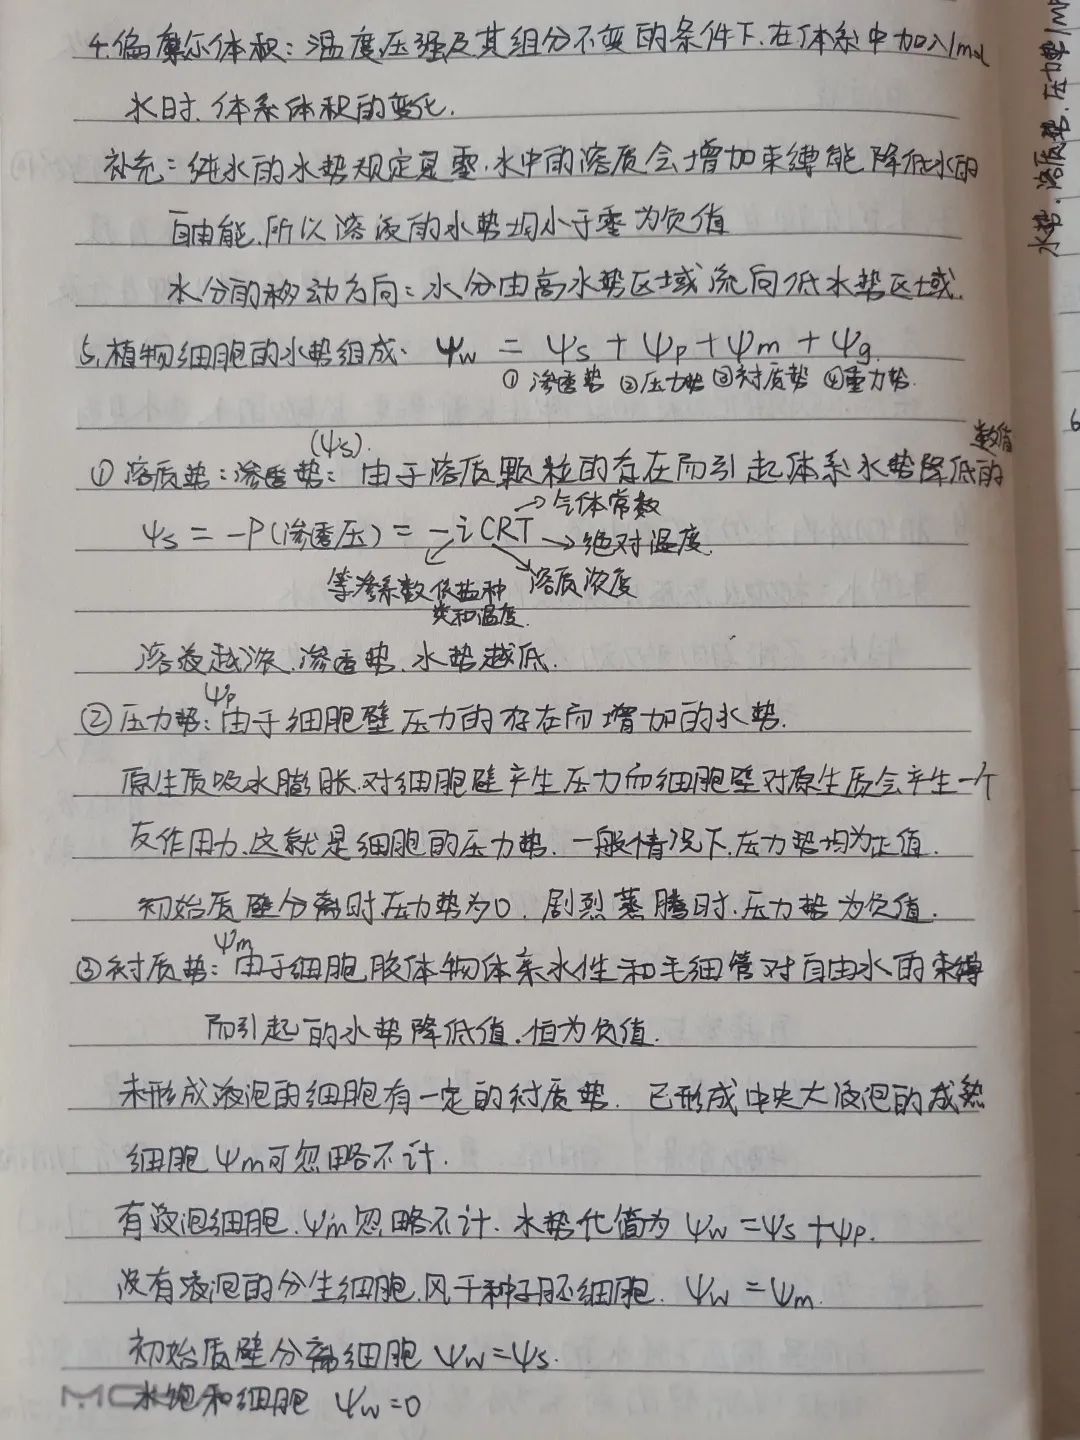 4.偏摩尔体积：温度压强及其组分不变的条件下.在体系中加入1mol
水时.体系体积的变化.
补充：纯水的水势规定为零.水中的溶质会增加束缚能降低水的
自由能.所以溶液的水势均小于零为负值
水分的移动方向：水分由高水势区域流向低水势区域.
5.植物细胞的水势组成. Ψw = Ψs + Ψp + Ψm + Ψg.
①渗透势 ②压力势 ③衬质势 ④重力势.
(Ψs).
数值
①溶质势：渗透势：由于溶质颗粒的存在而引起体系水势降低的
→气体常数
Ψs = -P(渗透压) = -iCRT →绝对温度.
等渗系数 依盐种 溶质浓度
类和温度.
溶液越浓.渗透势.水势越低.
Ψp
②压力势：由于细胞壁压力的存在而增加的水势.
原生质吸水膨胀.对细胞壁产生压力而细胞壁对原生质会产生一个
反作用力.这就是细胞的压力势.一般情况下.压力势均为正值.
初始质壁分离时压力势为0.剧烈蒸腾时.压力势为负值.
Ψm
③衬质势：由于细胞胶体物体亲水性和毛细管对自由水的束缚
而引起的水势降低值.恒为负值.
未形成液泡的细胞有一定的衬质势.已形成中央大液泡的成熟
细胞Ψm可忽略不计.
有液泡细胞.Ψm忽略不计.水势化简为 Ψw =Ψs +Ψp.
没有液泡的分生细胞.风干种子胚细胞. Ψw = Ψm.
初始质壁分离细胞 Ψw=Ψs.
水饱和细胞 Ψw=0
水势.溶质势.压力势